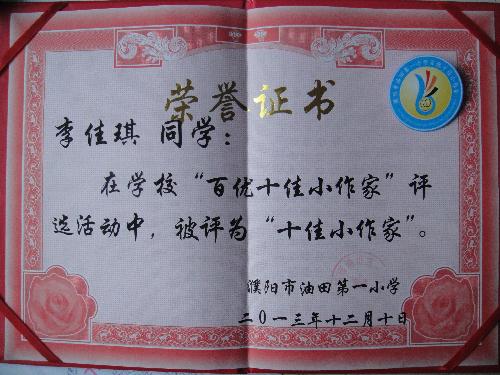 荣誉证书
李佳琪 同学：
在学校“百优十佳小作家”评
选活动中，被评为“十佳小作家”。
濮阳市油田第一小学
二〇一三年十二月十日